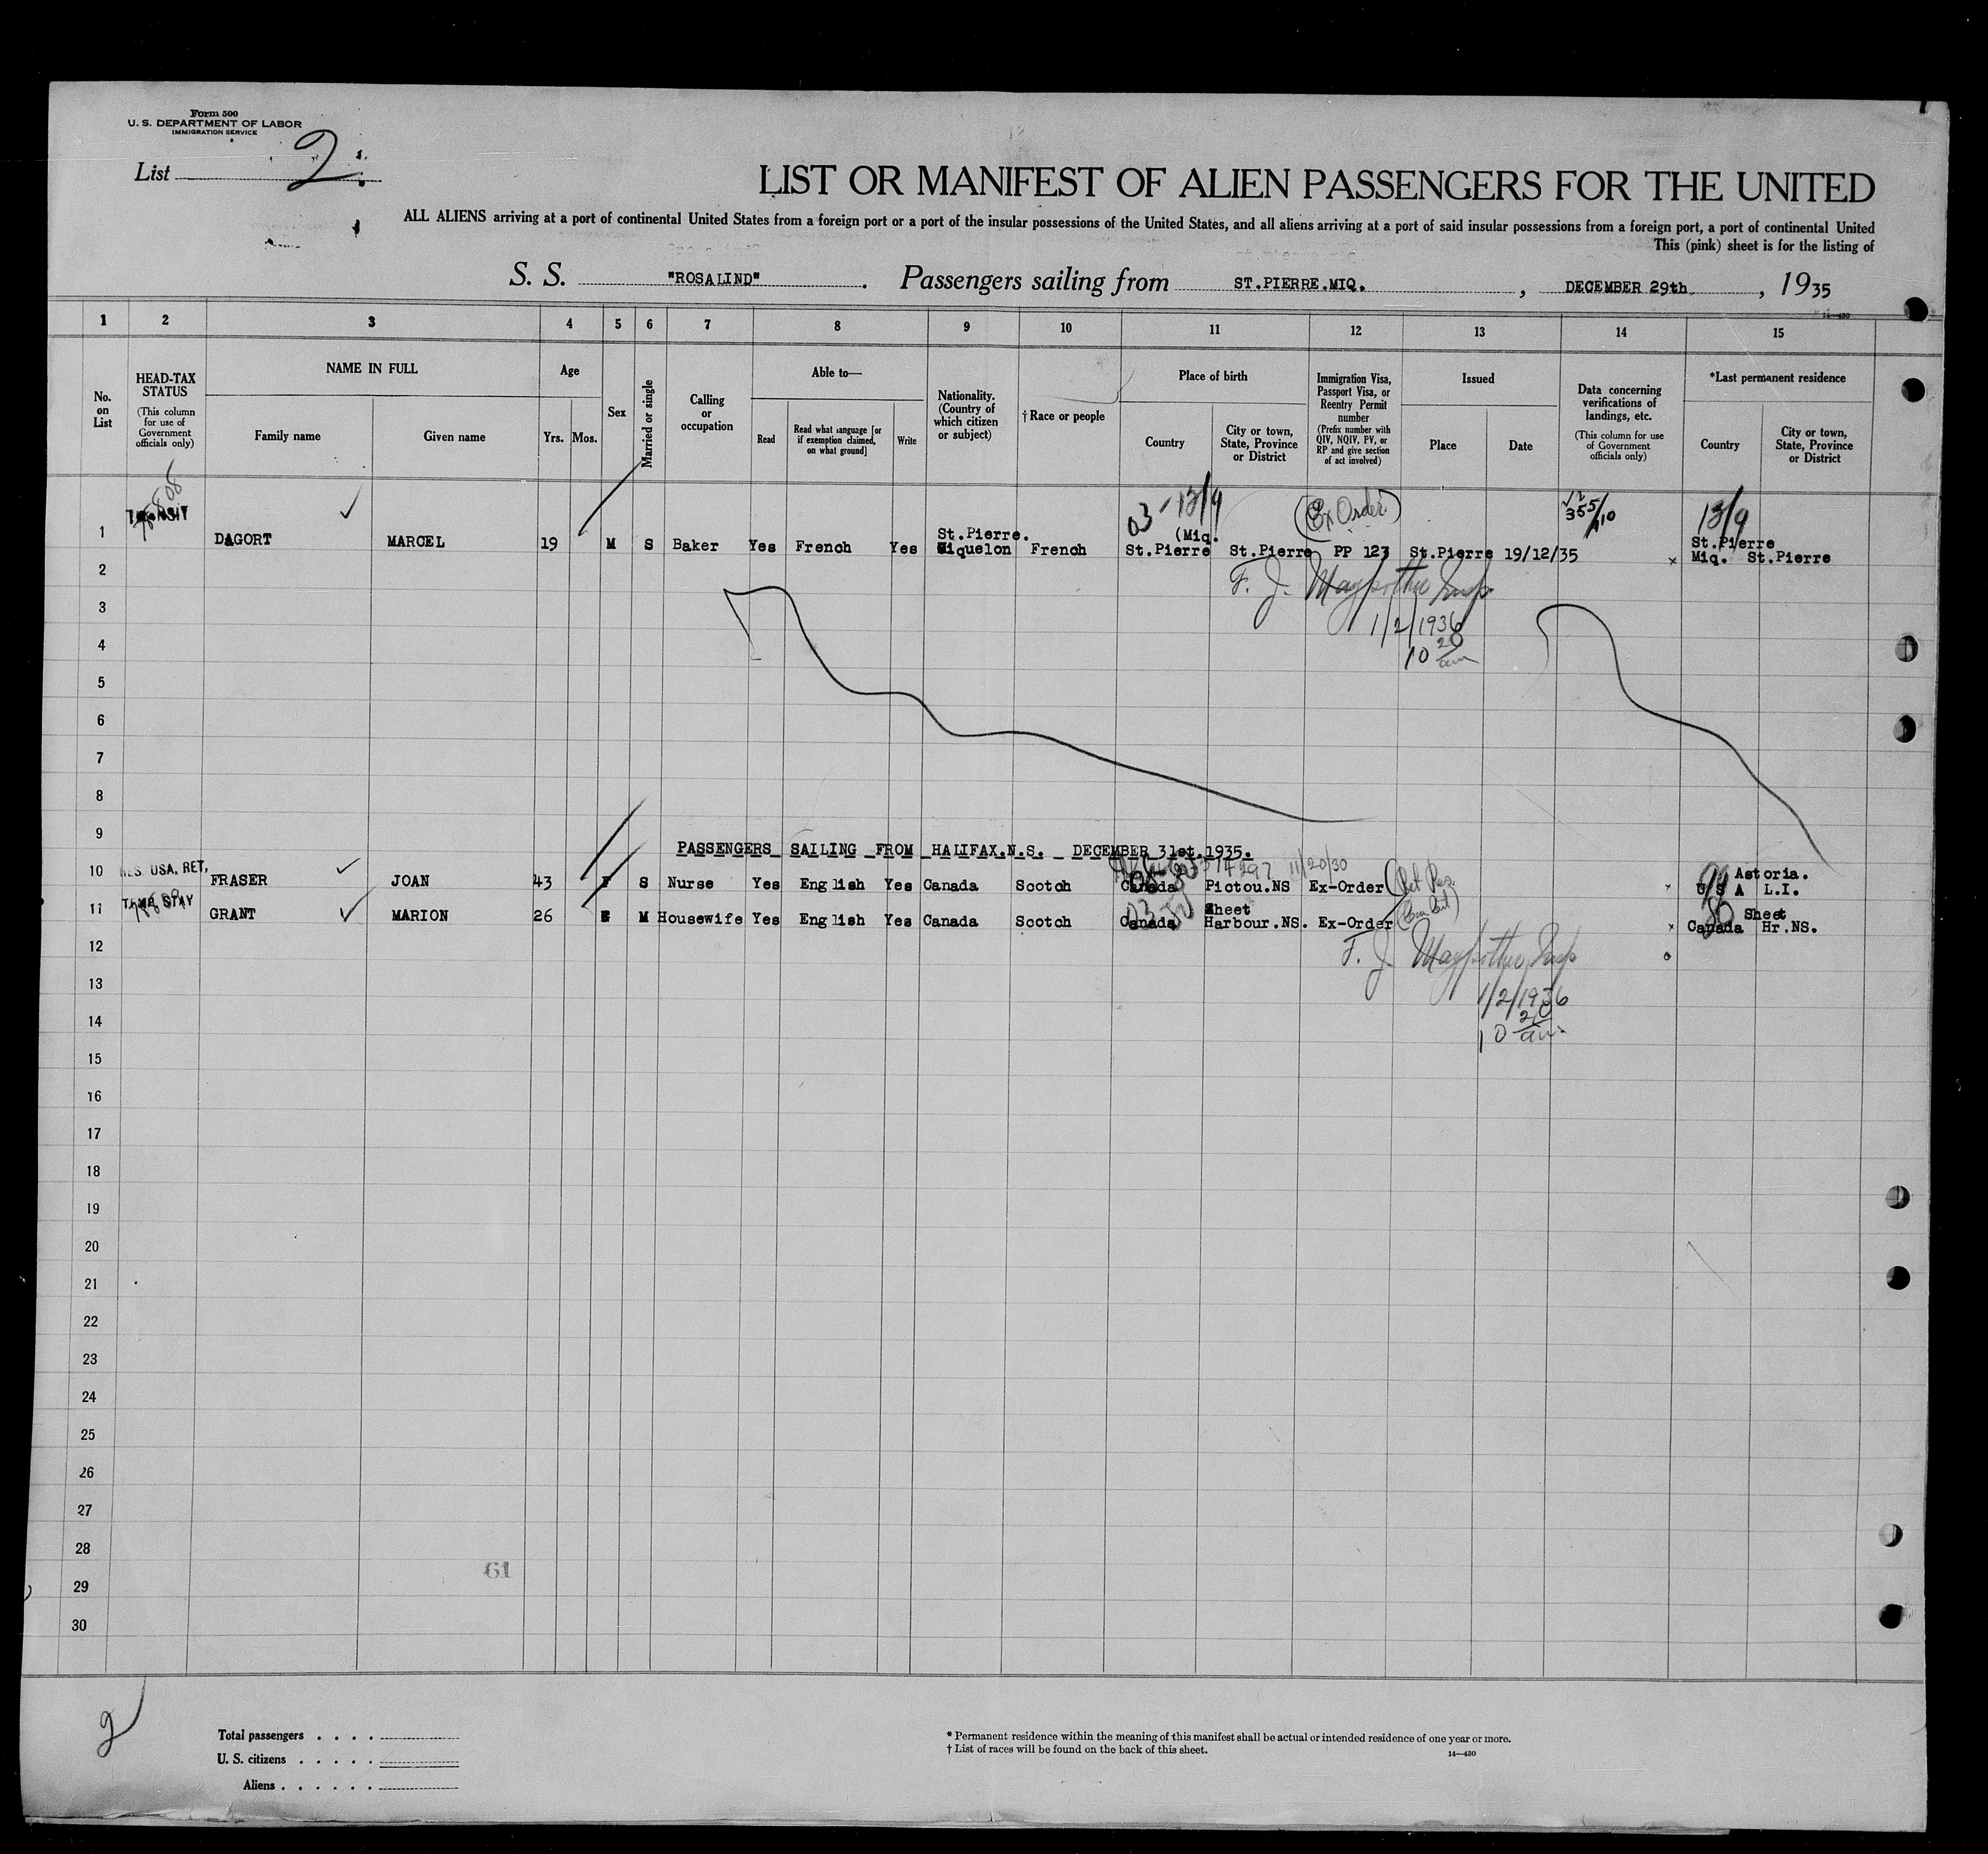 Form 500
U. S. DEPARTMENT OF LABOR
IMMIGRATION SERVICE
List 2
LIST OR MANIFEST OF ALIEN PASSENGERS FOR THE UNITED
ALL ALIENS arriving at a port of continental United States from a foreign port or a port of the insular possessions of the United States, and all aliens arriving at a port of said insular possessions from a foreign port, a port of continental United
This (pink) sheet is for the listing of
S. S. "ROSALIND". Passengers sailing from ST.PIERRE.MIQ. , DECEMBER 29th , 1935
14—430
1 2 3 4 5 6 7 8 9 10 11 12 13 14 15
No. on List
HEAD-TAX STATUS
(This column for use of Government officials only)
NAME IN FULL
Family name Given name
Age
Yrs. Mos.
Sex
Married or single
Calling or occupation
Able to—
Read Read what language [or if exemption claimed, on what ground] Write
Nationality. (Country of which citizen or subject)
†Race or people
Place of birth
Country City or town, State, Province or District
Immigration Visa, Passport Visa, or Reentry Permit number
(Prefix number with QIV, NQIV, PV, or RP and give section of act involved)
Issued
Place Date
Data concerning verifications of landings, etc.
(This column for use of Government officials only)
*Last permanent residence
Country City or town, State, Province or District
TRANSIT 03-13/9 (Ex Order) 13/9
St.Pierre. (Miq. St.Pierre
1 DAGORT MARCEL 19 M S Baker Yes French Yes Miquelon French St.Pierre St.Pierre PP 123 St.Pierre 19/12/35 x Miq. St.Pierre
2
3 1/2/1936
4 10 20 am
5
6
7
8
9
PASSENGERS SAILING FROM HALIFAX.N.S. DECEMBER 31st.1935.
11/20/30
RES. USA, RET, Astoria.
10 FRASER JOAN 43 F S Nurse Yes English Yes Canada Scotch Canada Pictou.NS Ex-Order U S A L.I.
TEMP STAY Sheet Sheet
11 GRANT MARION 26 F M Housewife Yes English Yes Canada Scotch Canada Harbour.NS. Ex-Order x Canada Hr.NS.
12
13 1/2/1936
14 10 20 am
15
16
17
18
19
20
21
22
23
24
25
26
27
28
61
29
30
2
Total passengers . . . .
U. S. citizens . . . . .
Aliens . . . . . .
* Permanent residence within the meaning of this manifest shall be actual or intended residence of one year or more.
† List of races will be found on the back of this sheet.
14—430